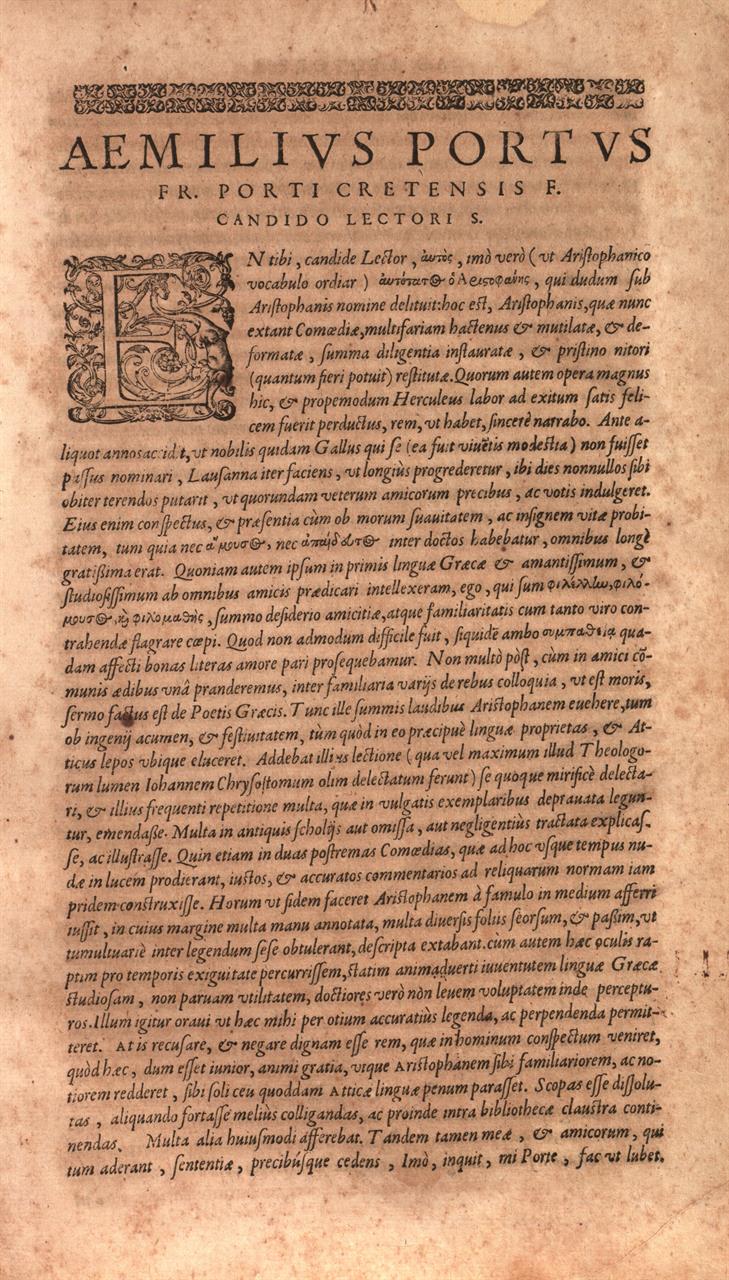 AEMILIVS PORTVS
FR. PORTI CRETENSIS F.
CANDIDO LECTORI S.
EN tibi, candide Lector, αὐτὸς, imò verò ( vt Aristophanico
vocabulo ordiar ) αὐτότατος ὁ Ἀριστοφάνης, qui dudum sub
Aristophanis nomine delituit: hoc est, Aristophanis, quæ nunc
extant Comœdiæ, multifariam hactenus & mutilatæ, & de-
formatæ, summa diligentia instauratæ, & pristino nitori
(quantum fieri potuit) restitutæ. Quorum autem opera magnus
hic, & propemodum Herculeus labor ad exitum satis feli-
cem fuerit perductus, rem, vt habet, sincerè narrabo. Ante a-
liquot annos accidit, vt nobilis quidam Gallus qui se (ea fuit viuētis modestia) non fuisset
passus nominari, Lausanna iter faciens, vt longiùs progrederetur, ibi dies nonnullos sibi
obiter terendos putarit, vt quorundam veterum amicorum precibus, ac votis indulgeret.
Eius enim conspectus, & præsentia cùm ob morum suauitatem, ac insignem vitæ probi-
tatem, tum quia nec ἄμουσος, nec ἀπαίδευτος inter doctos habebatur, omnibus longè
gratissima erat. Quoniam autem ipsum in primis linguæ Græcæ & amantissimum, &
studiosissimum ab omnibus amicis prædicari intellexeram, ego, qui sum φιλέλλην, φιλό-
μουσος, καὶ φιλομαθὴς, summo desiderio amicitiæ, atque familiaritatis cum tanto viro con-
trahendæ flagrare cœpi. Quod non admodum difficile fuit, siquidē ambo συμπαθείᾳ qua-
dam affecti bonas literas amore pari prosequebamur. Non multò pòst, cùm in amici cō-
munis ædibus vnâ pranderemus, inter familiaria varijs de rebus colloquia, vt est moris,
sermo factus est de Poetis Græcis. Tunc ille summis laudibus Aristophanem euehere, tum
ob ingenij acumen, & festiuitatem, tùm quòd in eo præcipuè linguæ proprietas, & At-
ticus lepos vbique eluceret. Addebat illius lectione ( qua vel maximum illud Theologo-
rum lumen Iohannem Chrysostomum olim delectatum ferunt) se quoque mirificè delecta-
ri, & illius frequenti repetitione multa, quæ in vulgatis exemplaribus deprauata legun-
tur, emendasse. Multa in antiquis scholijs aut omissa, aut negligentiùs tractata explicas-
se, ac illustrasse. Quin etiam in duas postremas Comœdias, quæ ad hoc vsque tempus nu-
dæ in lucem prodierant, iustos, & accuratos commentarios ad reliquarum normam iam
pridem construxisse. Horum vt fidem faceret Aristophanem à famulo in medium afferri
iussit, in cuius margine multa manu annotata, multa diuersis foliis seorsum, & passim, vt
tumultuariè inter legendum sese obtulerant, descripta extabant. cùm autem hæc oculis ra-
ptim pro temporis exiguitate percurrissem, statim animaduerti iuuentutem linguæ Græcæ
studiosam, non paruam vtilitatem, doctiores verò nòn leuem voluptatem inde perceptu-
ros. Illum igitur oraui vt hæc mihi per otium accuratiùs legenda, ac perpendenda permit-
teret. At is recusare, & negare dignam esse rem, quæ in hominum conspectum veniret,
quòd hæc, dum esset iunior, animi gratia, vtque Aristophanem sibi familiariorem, ac no-
tiorem redderet, sibi soli ceu quoddam Atticæ linguæ penum parasset. Scopas esse dissolu-
tas, aliquando fortassè meliùs colligandas, ac proinde intra bibliothecæ claustra conti-
nendas. Multa alia huiusmodi afferebat. Tandem tamen meæ, & amicorum, qui
tum aderant, sententiæ, precibúsque cedens, Imò, inquit, mi Porte, fac vt lubet.